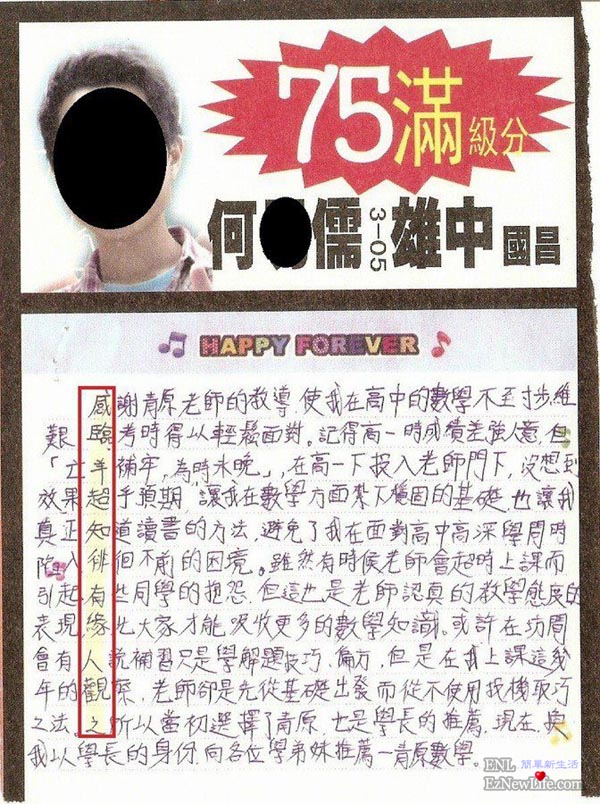 75滿級分
何 儒 3-05 雄中 國昌
HAPPY FOREVER
感謝青原老師的教導,使我在高中的數學不至寸步維
艱,臨考時得以輕鬆面對。記得高一時成績差強人意,但
「亡羊補牢,為時未晚」,在高一下投入老師門下,沒想到
效果超乎預期,讓我在數學方面紮下穩固的基礎,也讓我
真正知道讀書的方法,避免了我在面對高中高深學問時
陷入徘徊不前的困境。雖然有時侯老師會超時上課而
引起有些同學的抱怨,但這也是老師認真的教學態度的
表現,緣此大家才能吸收更多的數學知識。或許在坊間
會有人說補習只是學解題技巧、偏方,但是在我上課這幾
年的觀察,老師卻是先從基礎出發而從不使用投機取巧
之法。之所以當初選擇了青原,也是學長的推薦,現在,換
我以學長的身份,向各位學弟妹推薦—青原數學。
ENL 簡單新生活
EzNewLife.com